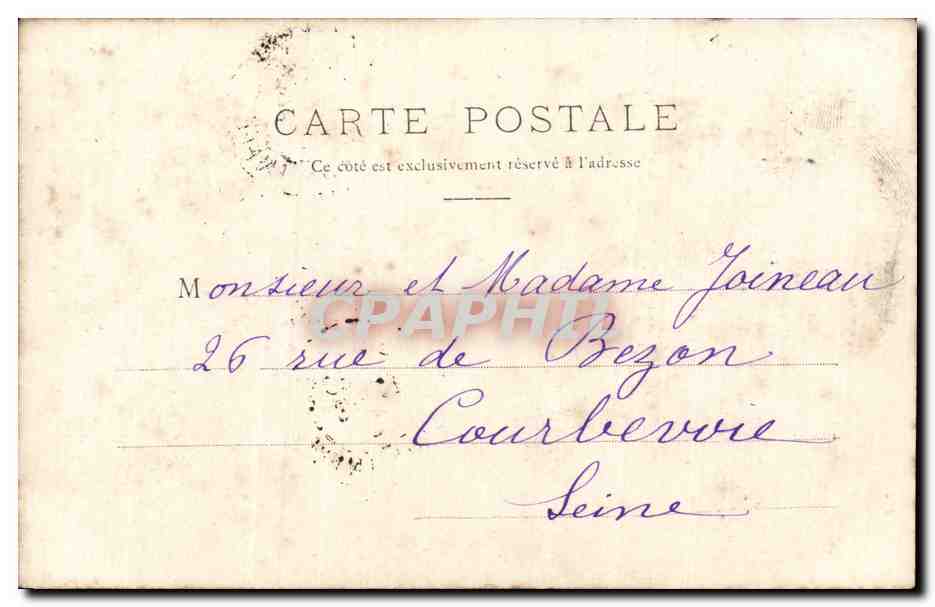 CARTE POSTALE
Ce côté est exclusivement réservé à l'adresse
Monsieur et Madame Joineau
CPAPHIL
26 rue de Bezon
Courbevoie
Seine